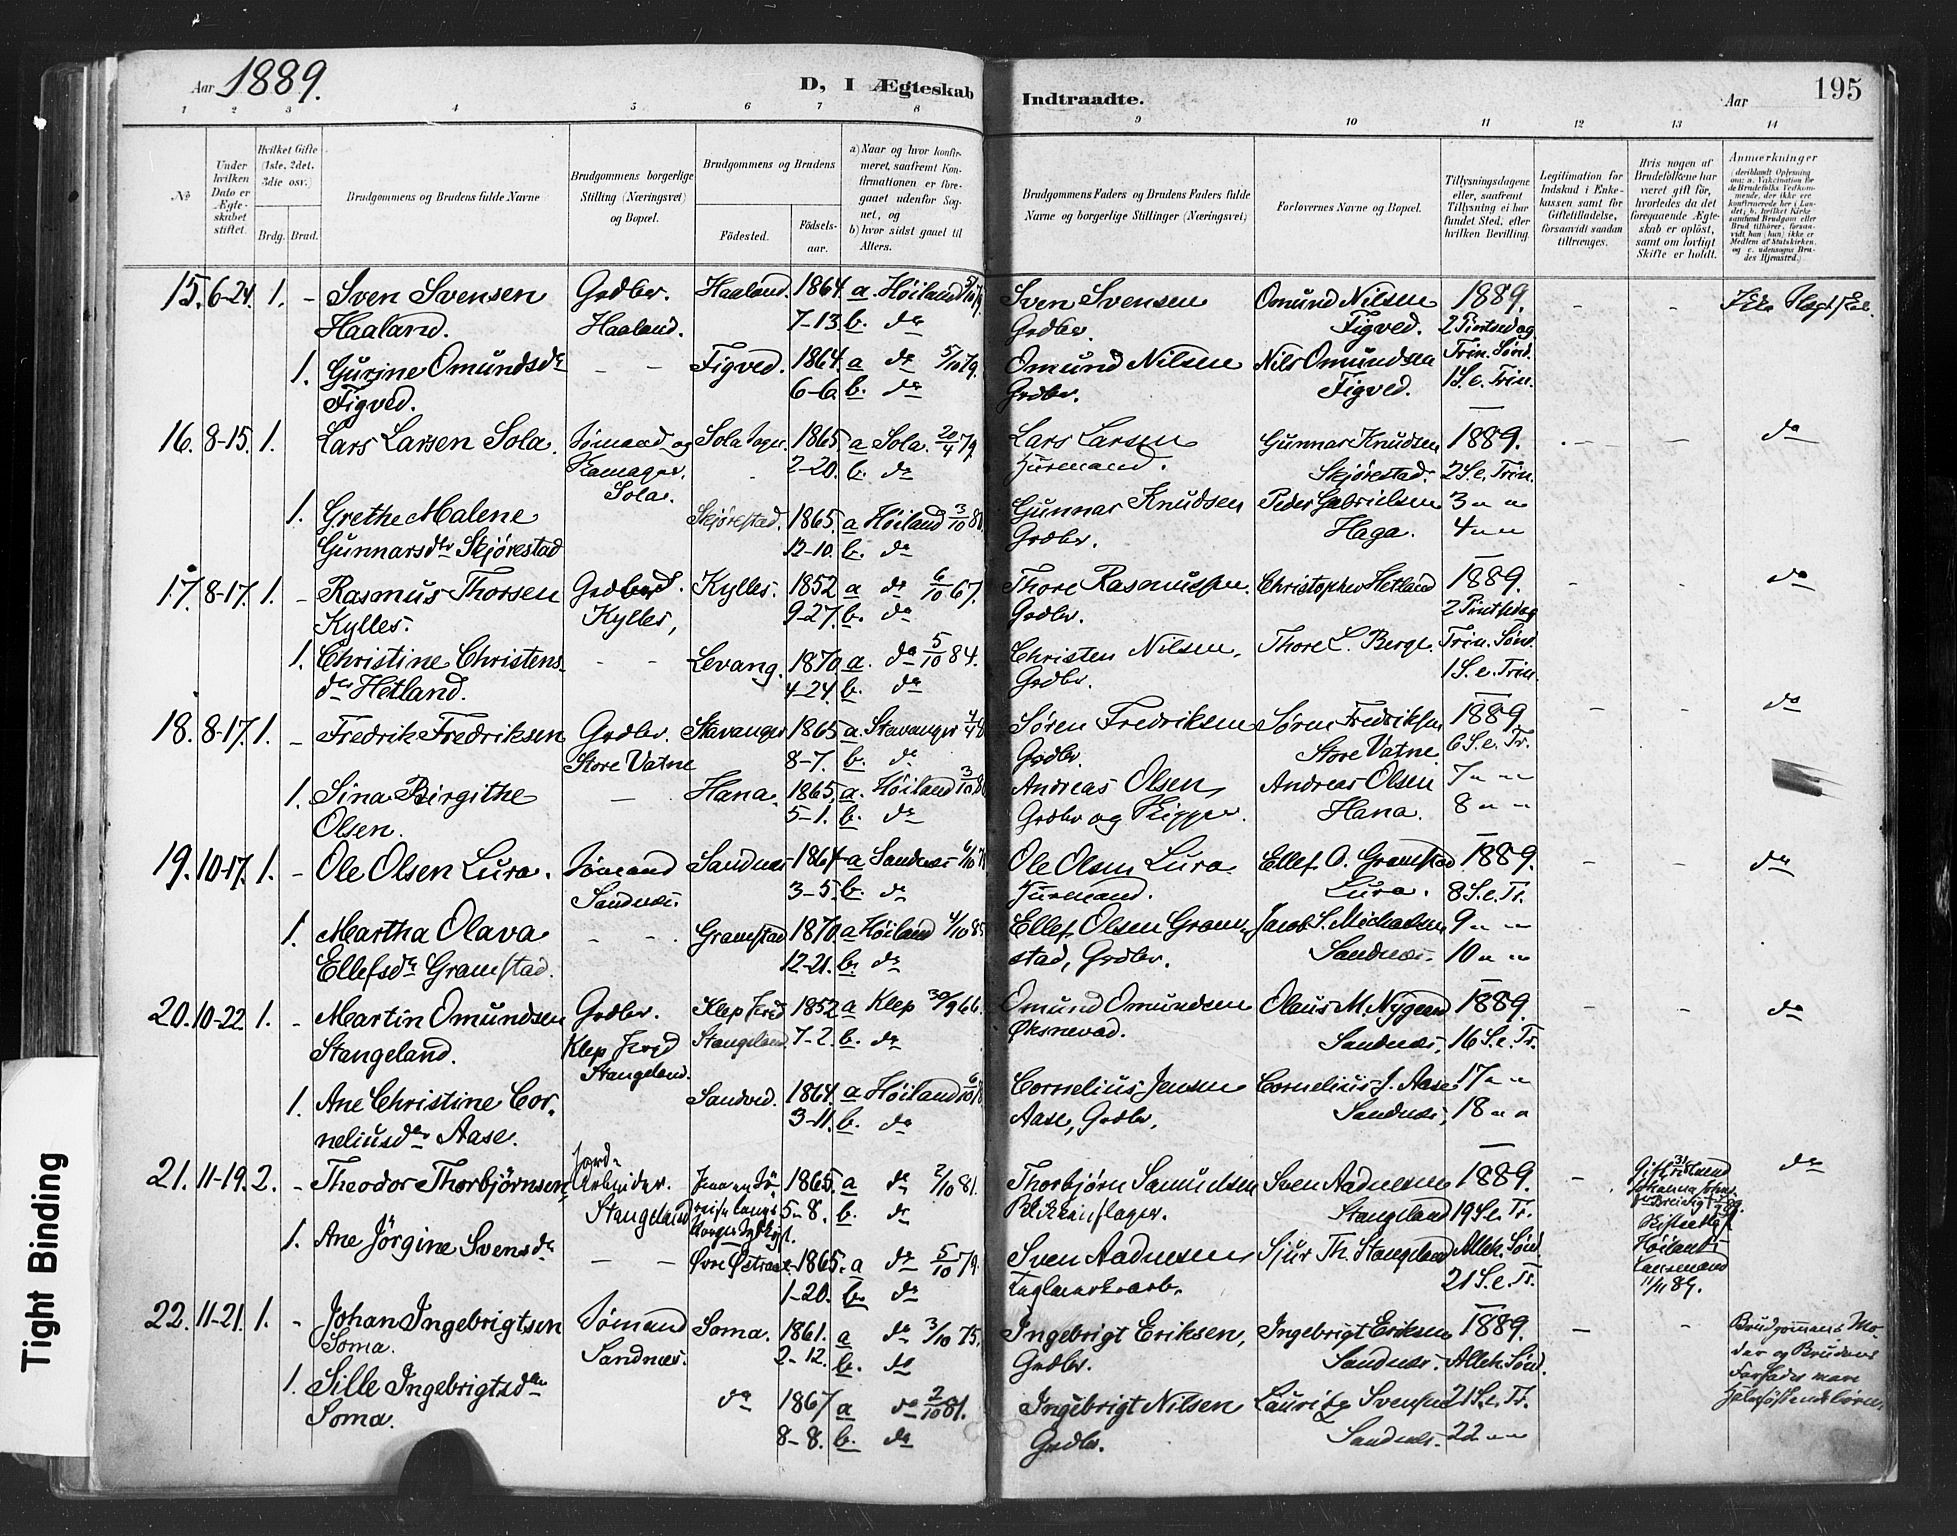 Aar 1889.
D, I Ægteskab
Indtraadte.
Aar
195
1 2 3 4 5 6 7 8 9 10 11 12 13 14
No
Under hvilken Dato er Ægteskabet stiftet.
Hvilket Gifte (1ste, 2det, 3die osv.)
Brdg. Brud.
Brudgommens og Brudens fulde Navne
Brudgommens borgerlige Stilling (Næringsvei) og Bopæl.
Brudgommens og Brudens
Fødested.
Fødselsaar.
a) Naar og hvor konfirmeret, saafremt Konfirmationen er foregaaet udenfor Sognet, og
b) hvor sidst gaaet til Alters.
Brudgommens Faders og Brudens Faders fulde Navne og borgerlige Stillinger (Næringsvei)
Forlovernes Navne og Bopæl.
Tillysningsdagene eller, saafremt Tillysning ei har fundet Sted, efter hvilken Bevilling.
Legitimation for Indskud i Enkekassen samt for Giftetilladelse, forsaavidt saadan tiltrænges.
Hvis nogen af Brudefolkene har været gift før, hvorledes da det foregaaende Ægteskab er opløst, samt om lovligt Skifte er holdt.
Anmærkninger
15. 6-24. 1. - Sven Svensen Grdbr. Haaland. 1864 a. Høiland 5/10 79. Sven Svensen Omund Nilsen 1889.
Haaland. Haaland. 7-13. b. do Grdbr. Figved. 2 Pintsedag
1. Gurine Omundsdr - - Figved. 1864. a do 5/10 79. Omund Nilsen Nils Omundsen Trin. Sønd.
Figved. 6-6. b. do Grdbr. Figved. 1 S. e. Trin.
16. 8-15. 1. Lars Larsen Sola. Sømand og Sola Sogn. 1865. a Sola. 20/4 79. Lars Larsen Gunnar Knudsen 1889. - - do
Sola. 2-20. b. do Husmand. Skjørestad. 2 S. e. Trin.
1. Grethe Malene Skjørestad. 1865. a Høiland 3/10 Gunnar Knudsen Peder Gabrielsen 3 " "
Gunnarsdr Skjørestad 12-10. b. do Grdbr. Haga. 4 " "
17. 8-17. 1. - Rasmus Thorsen Kylles. 1852 a do 6/10 67. Thore Rasmussen. Christopher Hetland 1889. - - do
Kylles. Kylles, 9-27. b. do Grdbr. 2 Pintsedag
1. Christine Christens- - - Levang. 1870 a. do 5/10 84. Christen Nilsen. Thore L. Berge. Trin. Sønd.
dr Hetland. 4-24. b. do Grdbr. 1 S. e. Trin.
18. 8-17. 1. - Fredrik Fredriksen Grdbr. Stavanger 1865 a. Stavanger Søren Fredriksen Søren Fredriksen 1889 - - do
Store Vatne 8-7. b. do Grdbr. Store Vatne. 6 S. e. Tr.
1. Sina Birgithe - Hana. 1865. a. Høiland 3/10 Andreas Olsen Andreas Olsen 7 " "
Olsen. 5-1. b. do Grdbr og Skipper. Hana. 8 " "
19. 10-17. 1. - Ole Olsen Lura. Sømand Sandnæs 1864 a Sandnæs 6/10 Ole Olsen Lura. Ellef O. Gramstad 1889. - - do
Sandnæs. 3-5. b. do Husmand. Lura. 8 S. e. Tr.
1. Martha Olava - - Gramstad 1870 a Høiland 4/10 85 Ellef Olsen Gram- Jacob S. Michaelsen 9 " "
Ellefsdr Gramstad. 12-21. b. do stad, Grdbr. Sandnæs. 10 " "
20. 10-22. 1. - Martin Omundsen Grdbr. Klep 1852 a Klep 30/9 66. Omund Omundsen Olaus M. Nygaard 1889. - - do
Stangeland. Klep Stangeland. 7-2. b. do Øksnevad. Sandnæs, 16 S. e. Tr.
Stangeland.
1. Ane Christine Cor- Sandved. 1864. a Høiland 6/10 Cornelius Jensen Cornelius J. Aase 17 " "
neliusdr Aase. 3-11. b. do Aase, Grdbr. Sandnæs, 18 " "
21. 11-19. 2. - Theodor Thorbjørnsen Jord- Arbeider. 1865. a do 2/10 81. Thorbjørn Samuelsen Sven Aadnesen 1889. - do
Stangeland 5-8. b. do Blikkenslager. Stangeland 19 S. e. Tr.
Høiland
11/11 89.
1. Ane Jörgine Svensdr - - Øvre 1865. a do 5/10 79. Sven Aadnesen Sjur Th. Stangeland Alleh. Sønd.
1-20. b. do 21 S. e. Tr.
22. 11-21. 1. - Johan Ingebrigtsen Sømand Soma. 1861. a do 3/10 75. Ingebrigt Eriksen, Ingebrigt Eriksen 1889. - - Brudgommens Mo-
Soma. Sandnæs. 2-12. b. do Grdbr. Sandnæs. Alleh. Sønd. der og Brudens
1. Sille Ingebrigtsdtr do 1867 a do 2/10 81. Ingebrigt Nilsen Lauritz Svensen 21 S. e. Tr. Farfader vare
Soma. 8-8. b. do Grdbr. Sandnæs. 22 " " Halvsøskendebørn.
Tight Binding